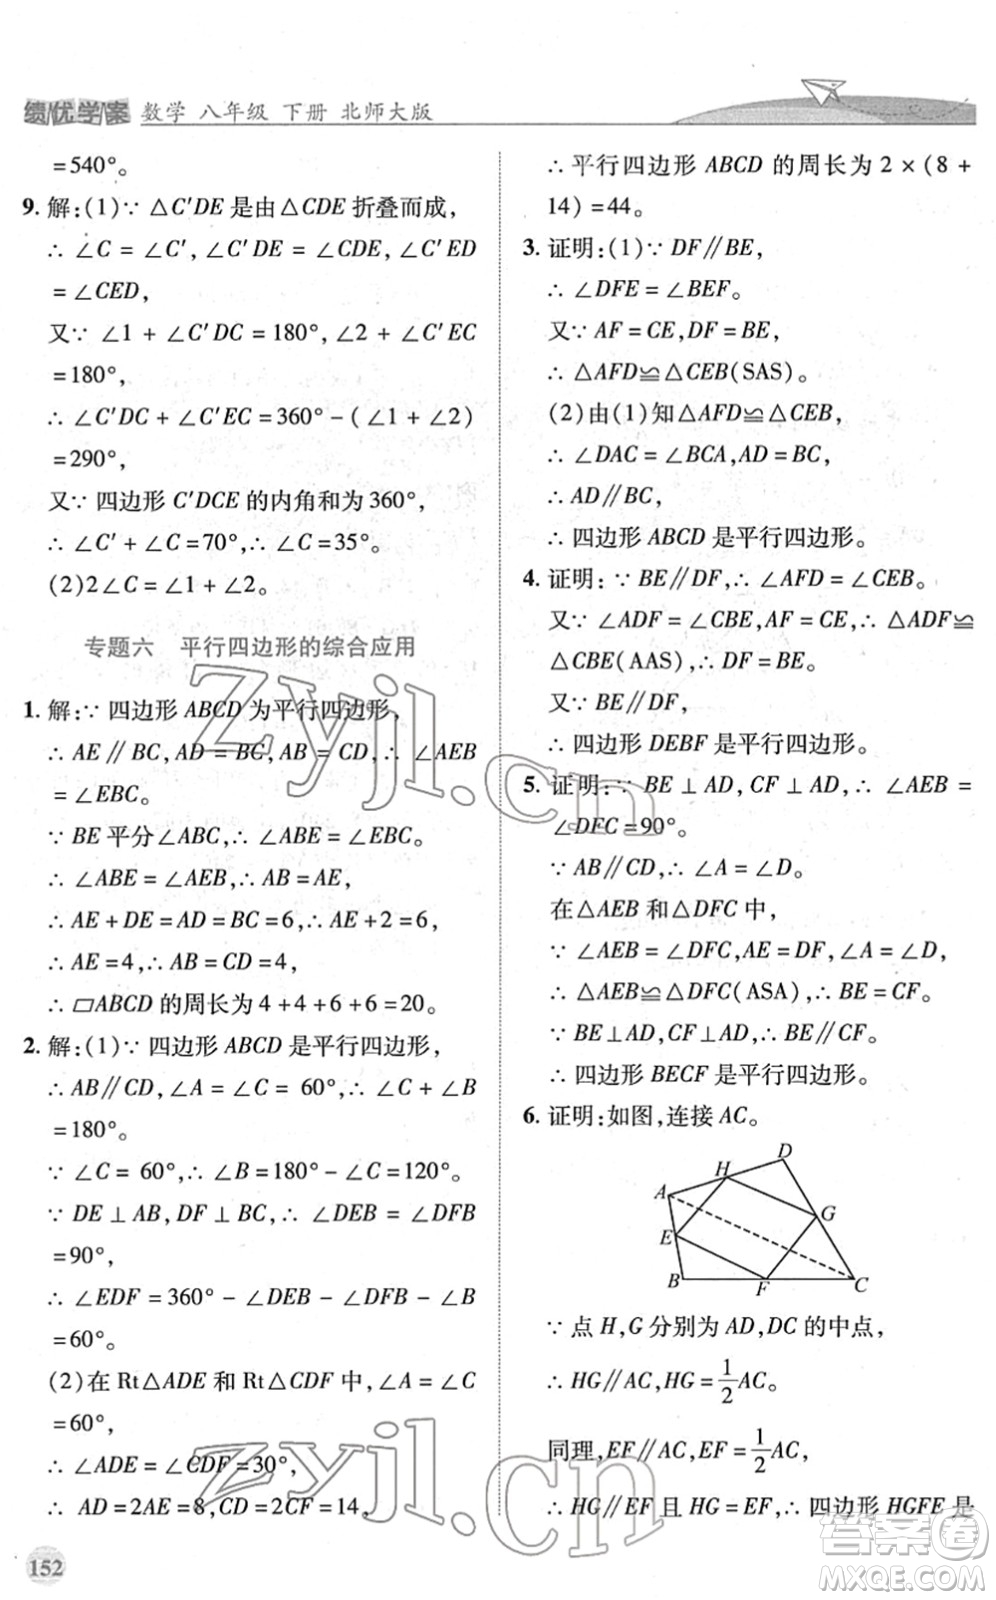 绩优学案 数学 八年级 下册 北师大版
=540°。
9. 解:(1)∵ △C′DE 是由△CDE 折叠而成,
∴ ∠C = ∠C′, ∠C′DE = ∠CDE, ∠C′ED
= ∠CED,
又∵ ∠1 + ∠C′DC = 180°, ∠2 + ∠C′EC
=180°,
∴ ∠C′DC + ∠C′EC = 360° - ( ∠1 + ∠2)
=290°,
又∵ 四边形 C′DCE 的内角和为 360°,
∴ ∠C′ + ∠C = 70°,∴ ∠C = 35°。
(2)2∠C = ∠1 + ∠2。
专题六 平行四边形的综合应用
1. 解:∵ 四边形 ABCD 为平行四边形,
∴ AE∥BC, AD = BC, AB = CD,∴ ∠AEB
= ∠EBC。
∵ BE 平分∠ABC,∴ ∠ABE = ∠EBC。
∴ ∠ABE = ∠AEB,∴ AB = AE,
∴ AE + DE = AD = BC = 6,∴ AE + 2 = 6,
∴ AE = 4,∴ AB = CD = 4,
∴ ▱ABCD 的周长为 4 + 4 + 6 + 6 = 20。
2. 解:(1)∵ 四边形 ABCD 是平行四边形,
∴ AB∥CD, ∠A = ∠C = 60°,∴ ∠C + ∠B
=180°。
∵ ∠C = 60°,∴ ∠B = 180° - ∠C = 120°。
∵ DE⊥AB, DF⊥BC,∴ ∠DEB = ∠DFB
=90°,
∴ ∠EDF = 360° - ∠DEB - ∠DFB - ∠B =
60°。
(2)在 Rt△ADE 和 Rt△CDF 中, ∠A = ∠C
=60°,
∴ ∠ADE = ∠CDF = 30°,
∴ AD = 2AE = 8, CD = 2CF = 14,
152
∴ 平行四边形 ABCD 的周长为 2 × (8 +
14) = 44。
3. 证明:(1)∵ DF∥BE,
∴ ∠DFE = ∠BEF。
又∵ AF = CE, DF = BE,
∴ △AFD≌△CEB(SAS)。
(2)由(1)知△AFD≌△CEB,
∴ ∠DAC = ∠BCA, AD = BC,
∴ AD∥BC,
∴ 四边形 ABCD 是平行四边形。
4. 证明: ∵ BE∥DF,∴ ∠AFD = ∠CEB。
又∵ ∠ADF = ∠CBE, AF = CE,∴ △ADF≌
△CBE(AAS),∴ DF = BE。
又∵ BE∥DF,
∴ 四边形 DEBF 是平行四边形。
5. 证明: ∵ BE⊥AD, CF⊥AD,∴ ∠AEB =
∠DFC = 90°。
∵ AB∥CD,∴ ∠A = ∠D。
在△AEB 和△DFC 中,
∵ ∠AEB = ∠DFC, AE = DF, ∠A = ∠D,
∴ △AEB≌△DFC(ASA),∴ BE = CF。
∵ BE⊥AD, CF⊥AD,∴ BE∥CF。
∴ 四边形 BECF 是平行四边形。
6. 证明:如图,连接 AC。
D
H
A
G
E
B
F
C
∵ 点 H, G 分别为 AD, DC 的中点,
∴ HG∥AC, HG = 1/2 AC。
同理, EF∥AC, EF = 1/2 AC,
∴ HG∥EF 且 HG = EF,∴ 四边形 HGFE 是
zyjl.cn
zyjl.cn
答案卷
MXQE.COM